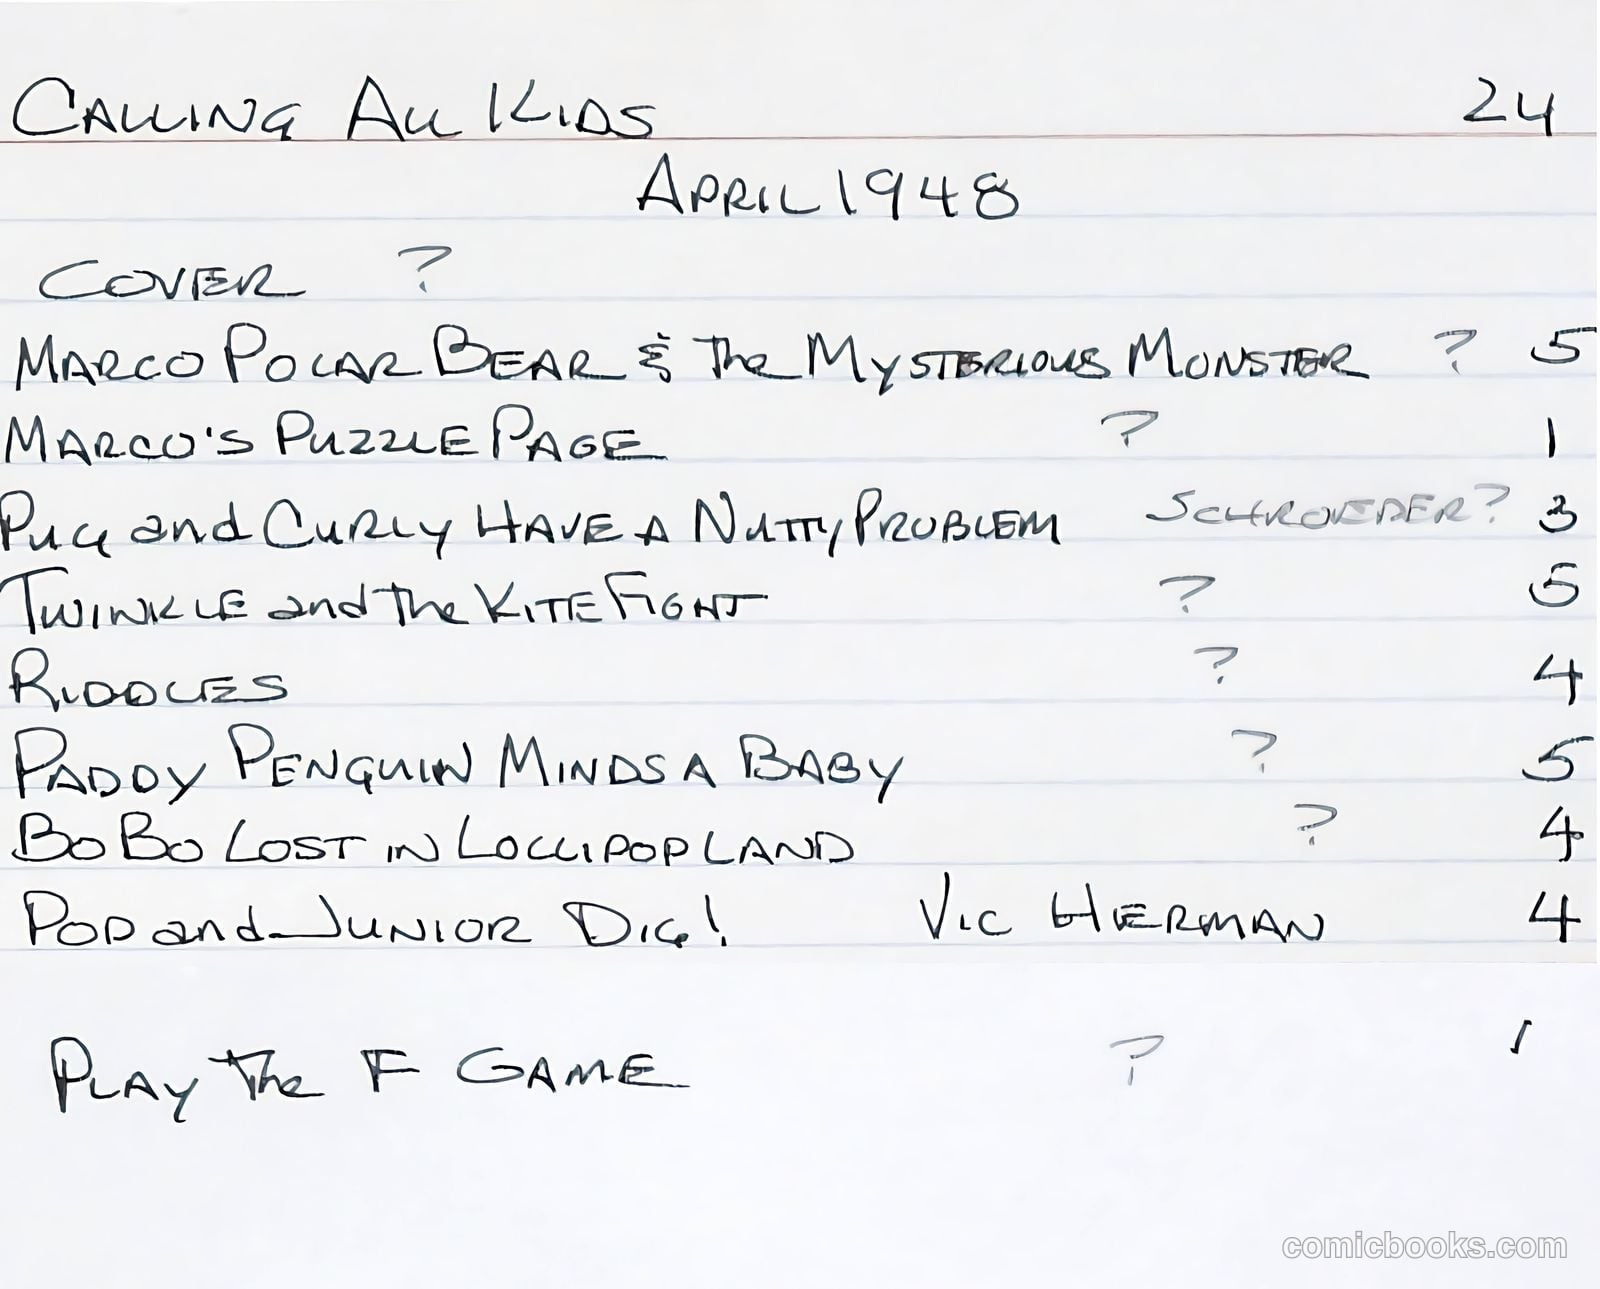 CALLING ALL KIDS 24
APRIL 1948
COVER ?
MARCO POLAR BEAR & The MYSTERIOUS MONSTER ? 5
MARCO'S PUZZLE PAGE ? 1
PUG and CURLY HAVE A NUTTY PROBLEM SCHROEDER? 3
TWINKLE and The KITE FIGHT ? 5
RIDDLES ? 4
PADDY PENGUIN MINDS A BABY ? 5
BOBO LOST IN LOLLIPOP LAND ? 4
POP and JUNIOR DIG! VIC HERMAN 4
PLAY The F GAME ? 1
comicbooks.com